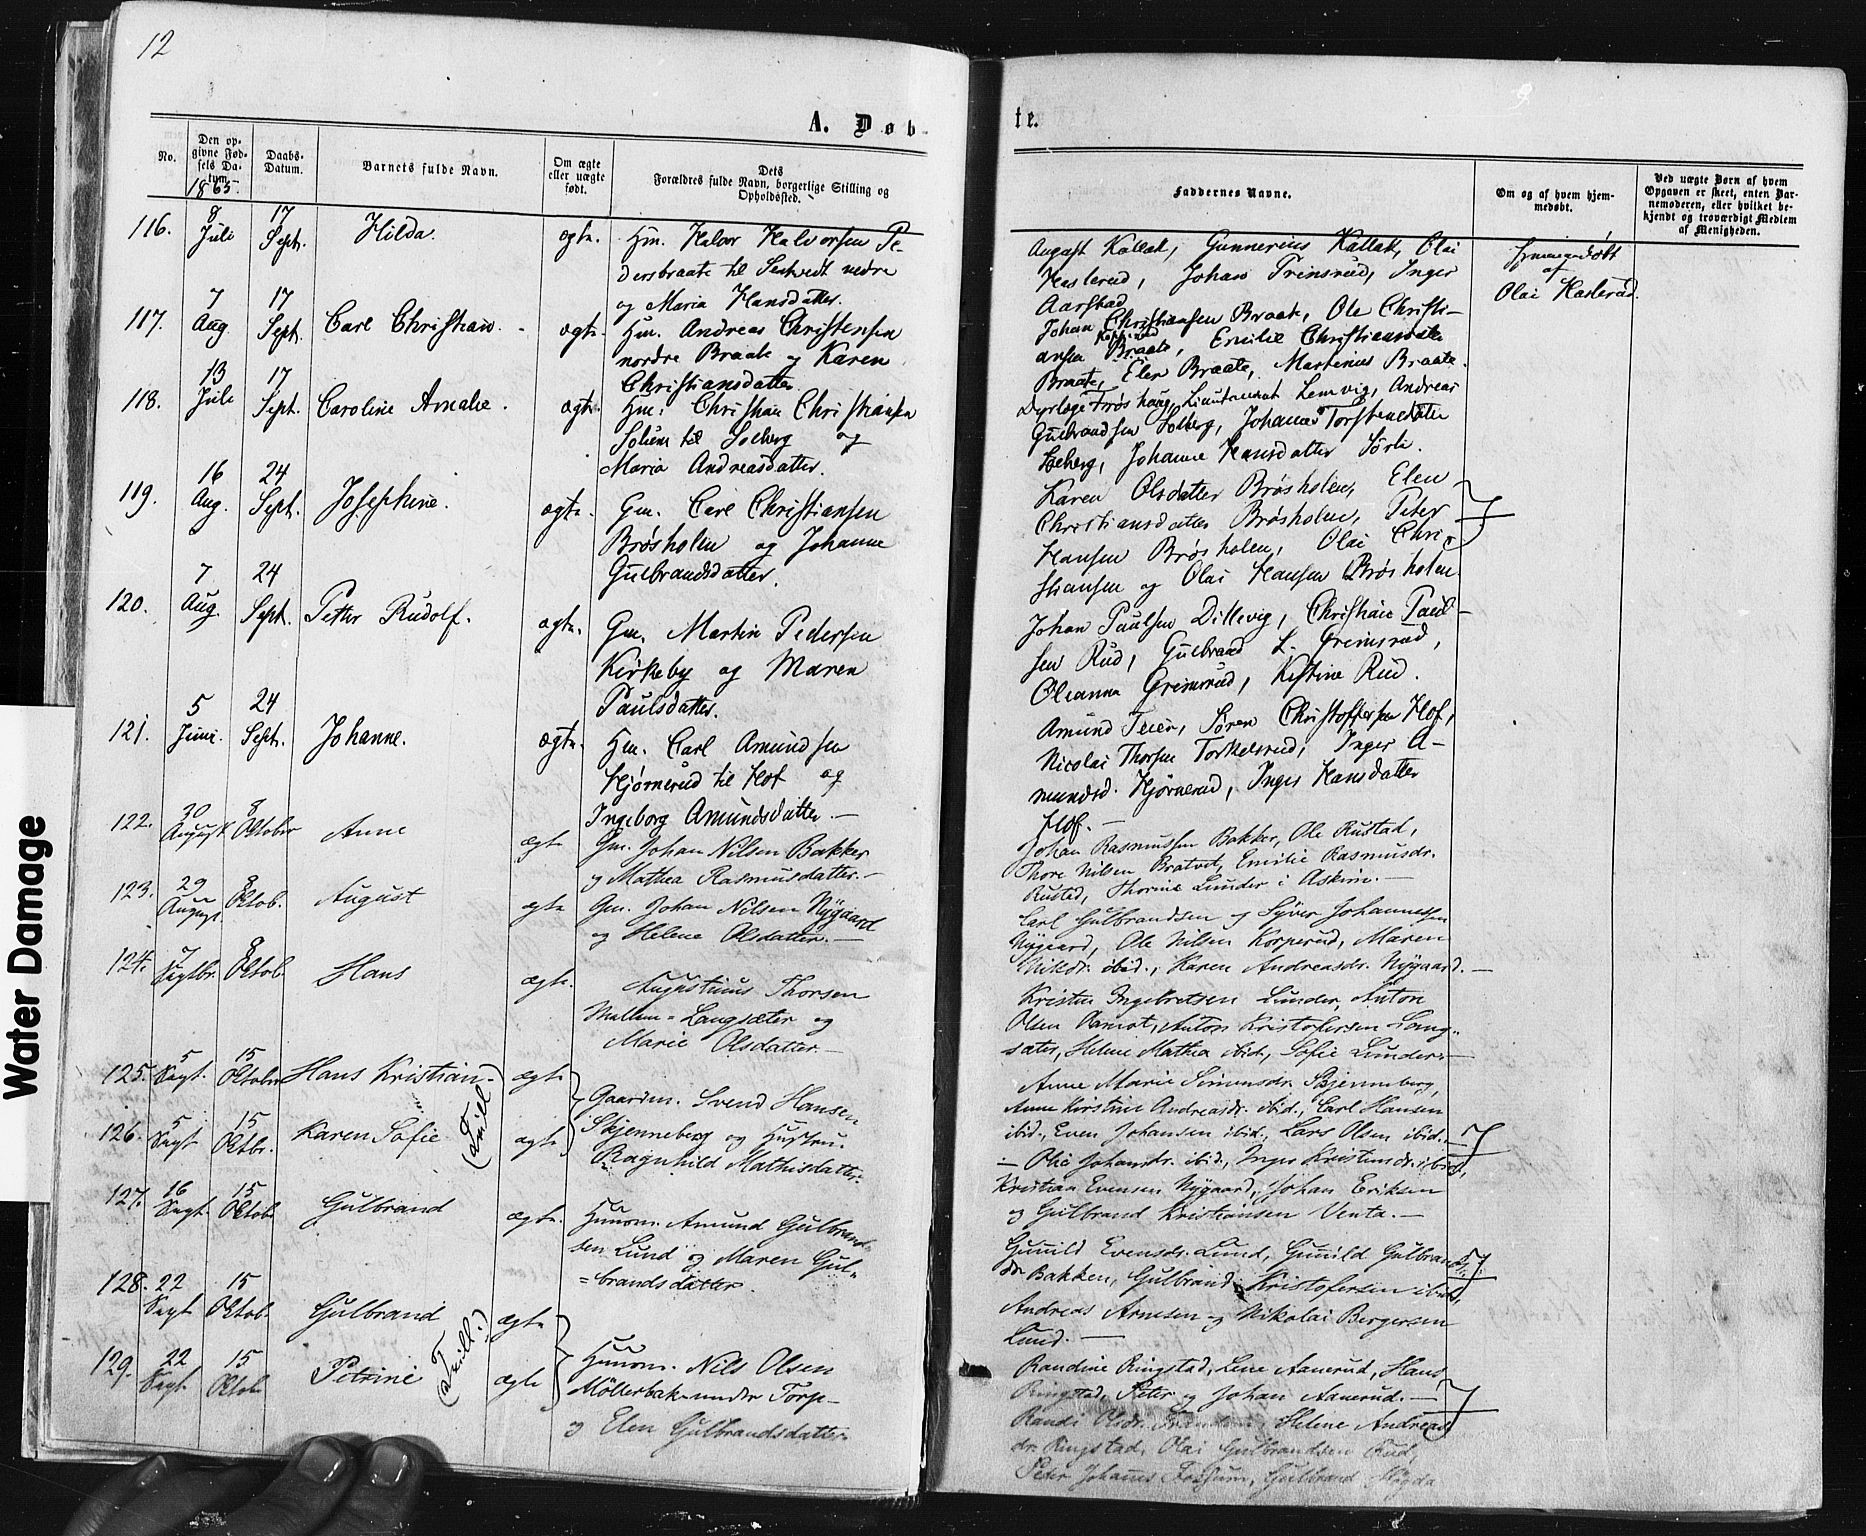 12
A. Døb-
te.
No.
Den op-
givne Fød-
sels Da-
tum.
1865.
Daabs-
Datum.
Barnets fulde Navn.
Om ægte
eller uægte
født.
Dets
Forældres fulde Navn, borgerlige Stilling og
Opholdssted.
Faddernes Navne.
Om og af hvem hjem-
medøbt.
Ved uægte Børn af hvem
Opgaven er skeet, enten Bar-
nemoderen, eller hvilket be-
kjendt og troværdigt Medlem
af Menigheden.
116. 8 Juli 17 Sept. Hilda. ægte.
Hm. Halvor Halvorsen Pe-
dersbraate til nedre
og Maria Hansdatter.
August Kallak, Gunnerius Kallak, Olai
Haslerud, Johan Trinsrud, Inger
Aarstad
Hjemmedøbt
af
Olai Haslerud.
117. 7 Aug. 17 Sept. Carl Christian. ægte.
Hm. Andreas Christensen
nordre Braate og Karen
Christiansdatter.
Johan Christiansen Braate, Ole Christi-
ansen Braate, Emilie Christiansdatter
Braate, Elen Braate, Martinius Braate.
118. 13 Juli 17 Sept. Caroline Amalie. ægte.
Hm. Christian Christiansen
Solum til Solberg og
Maria Andreasdatter.
Dyrlæge Frøshaug, Lieutenant Lemvig, Andreas
Gulbrandsen Solberg, Johanne Torstensdatter
Solberg, Johanne Hansdatter Sörli.
119. 16 Aug. 24 Sept. Josephine. ægte.
Gm. Carl Christiansen
Brøsholen og Johanne
Gulbrandsdatter.
Karen Olsdatter Brøsholen, Elen
Christiansdatter Brøsholen, Peter
Hansen Brøsholen, Olai Chri-
stiansen og Olai Hansen Brøsholen
120. 7 Aug. 24 Sept. Petter Rudolf. ægte.
Gm. Martin Pedersen
Kirkeby og Maren
Paulsdatter.
Johan Paulsen Dillevig, Christian Paul-
sen Rud, Gulbrand L. Grimsrud,
Oleanna Grimsrud, Kistine Rud.
121. 5 Juni. 24 Sept. Johanne. ægte.
Hm. Carl Amundsen
Hjørnerud til Hof og
Ingeborg Amundsdatter.—
Amund Teier, Sören Christoffersen Hof,
Nicolai Thorsen Torkelsrud, Inger A-
mundsd. Hjørnerud, Inger Hansdatter
Hof.—
122. 30 August 8 Oktober Anne ægte
Gm. Johan Nilsen Bakker
og Mathea Rasmusdatter.—
Johan Rasmussen Bakker, Ole Rustad,
Thore Nilsen Bratvet, Emilie Rasmusdr.
Rustad, Thorine Lunder i Askim.—
123. 29 August. 8 Oktob. August ægte
Gm. Johan Nilsen Nygaard
og Helene Olsdatter.—
Carl Gulbrandsen og Syver Johannessen
Nygaard, Ole Nilsen Korperud, Maren
Nilsdr. ibid., Karen Andreasdr. Nygaard.—
124. 7 Septbr. 8 Oktob. Hans ægte.
Augustinus Thorsen
Mellem-Langsæter og
Marie Olsdatter.—
Kristen Ingebretsen Lunder, Anton
Olsen Aamot, Anton Kristofersen Lang-
sæter, Helene Mathea ibid., Sofie Lunder.—
125. 5 Sept. 15 Oktober Hans Kristian ægte
126. 5 Sept 15 Oktbr. Karen Sofie ægte
(Tvill.)
Gaardm. Svend Hansen
Skjenneberg og Hustru
Ragnhild Mathisdatter.
Anne Marie Simensdr. Skjenneberg,
Anne Kirstine Andreasdr. ibid., Carl Hansen
ibid., Even Johansen ibid., Lars Olsen ibid.
— Olia Johansdr. ibid., Inger Kristensdr. ibid,
Kristian Evensen Nygaard, Johan Eriksen
og Gulbrand Kristiansen Venta.—
127. 16 Sept. 15 Oktob Gulbrand ægte.
Husm. Amund Gulbrand-
sen Lund og Maren Gul-
brandsdatter.
Gunild Evensdr. Lund, Gunild Gulbrands-
dr. Bakken, Gulbrand Kristofersen ibid,
Andreas Arnesen og Nikolai Bergersen
Lund.—
128. 22 Sept 15 Oktob. Gulbrand ægte
129. 22 Sept 15 Oktob Petrine ægte
(Tvill.)
Husm. Nils Olsen
Möllerbak under Torp
og Elen Gulbrandsdatter.
Randine Ringstad, Lene Aanerud, Hans
Ringstad, Peter og Johan Aanerud.—
Randi Olsdr. Helene Andreas-
dr. Ringstad, Olai Gulbrandsen Rud,
Peter Johannes Gulbrand
Water Damage